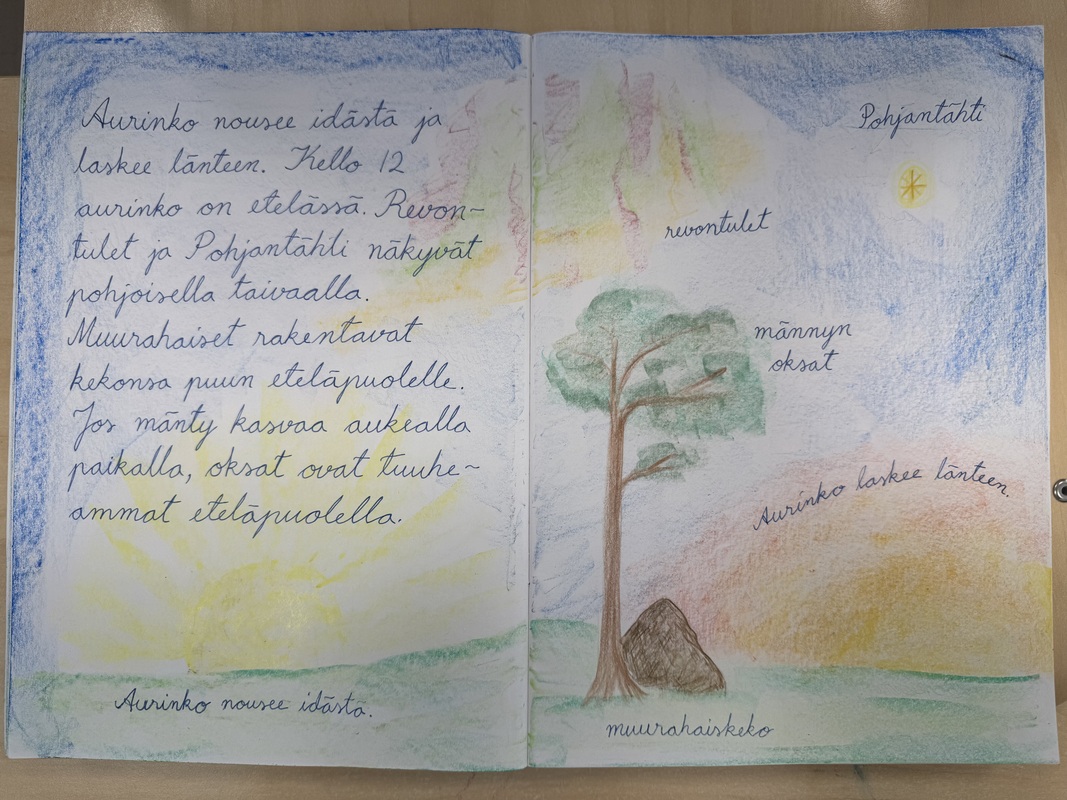 Aurinko nousee idästä ja
laskee länteen. Kello 12
aurinko on etelässä. Revon-
tulet ja Pohjantähti näkyvät
pohjoisella taivaalla.
Muurahaiset rakentavat
kekonsa puun eteläpuolelle.
Jos mänty kasvaa aukealla
paikalla, oksat ovat tuuhe-
ammat eteläpuolella.
Aurinko nousee idästä.
Pohjantähti
revontulet
männyn
oksat
Aurinko laskee länteen.
muurahaiskeko